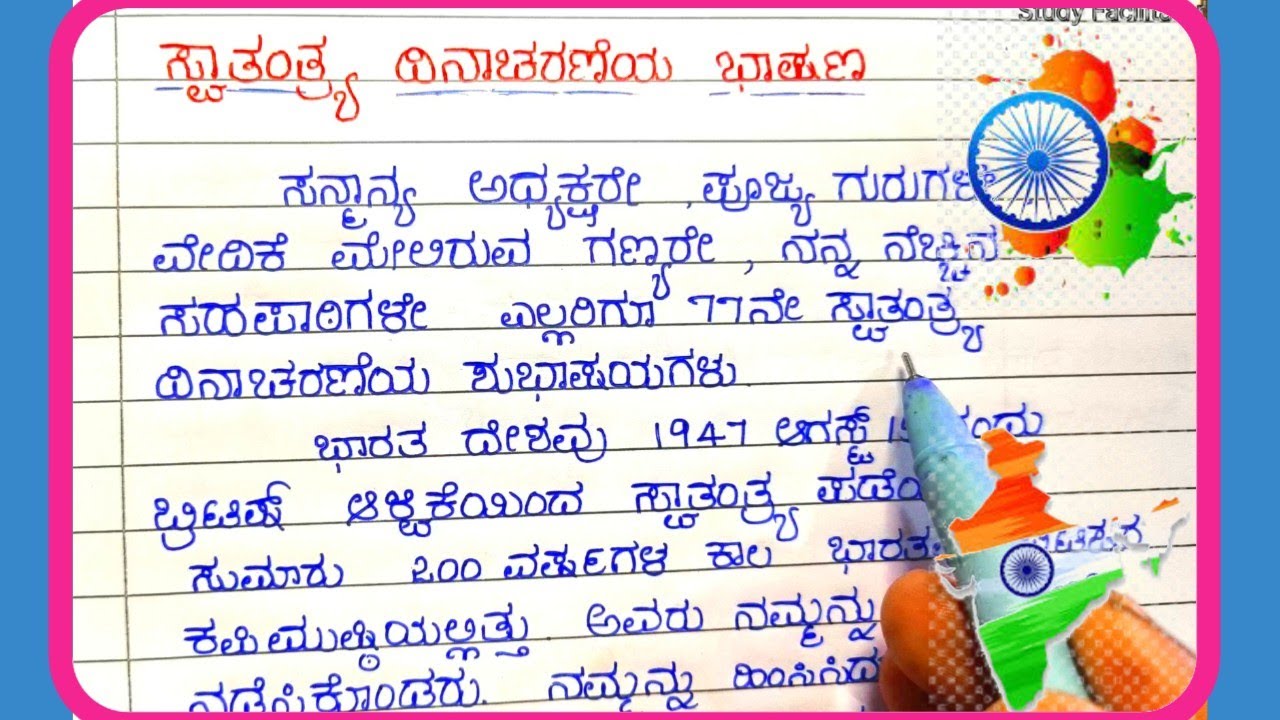 Study Facilita
ಸ್ವಾತಂತ್ರ್ಯ ದಿನಾಚರಣೆಯ ಭಾಷಣ
ಸನ್ಮಾನ್ಯ ಅಧ್ಯಕ್ಷರೇ , ಪೂಜ್ಯ
ವೇದಿಕೆ ಮೇಲಿರುವ ಗಣ್ಯರೇ , ನನ್ನ ನೆಚ್ಚಿನ
ಸಹಪಾಠಿಗಳೇ ಎಲ್ಲರಿಗೂ 77ನೇ ಸ್ವಾತಂತ್ರ್ಯ
ದಿನಾಚರಣೆಯ ಶುಭಾಷಯಗಳು.
ಭಾರತ ದೇಶವು 1947 ಆಗಸ್ಟ್
ಬ್ರಿಟಿಷ್ ಆಳ್ವಿಕೆಯಿಂದ ಸ್ವಾತಂತ್ರ್ಯ
ಸುಮಾರು 200 ವರ್ಷಗಳ ಕಾಲ
ಕಪಿಮುಷ್ಠಿಯಲ್ಲಿತ್ತು. ಅವರು ನಮ್ಮನ್ನು
ನಡೆಸಿಕೊಂಡರು. ನಮ್ಮನ್ನು